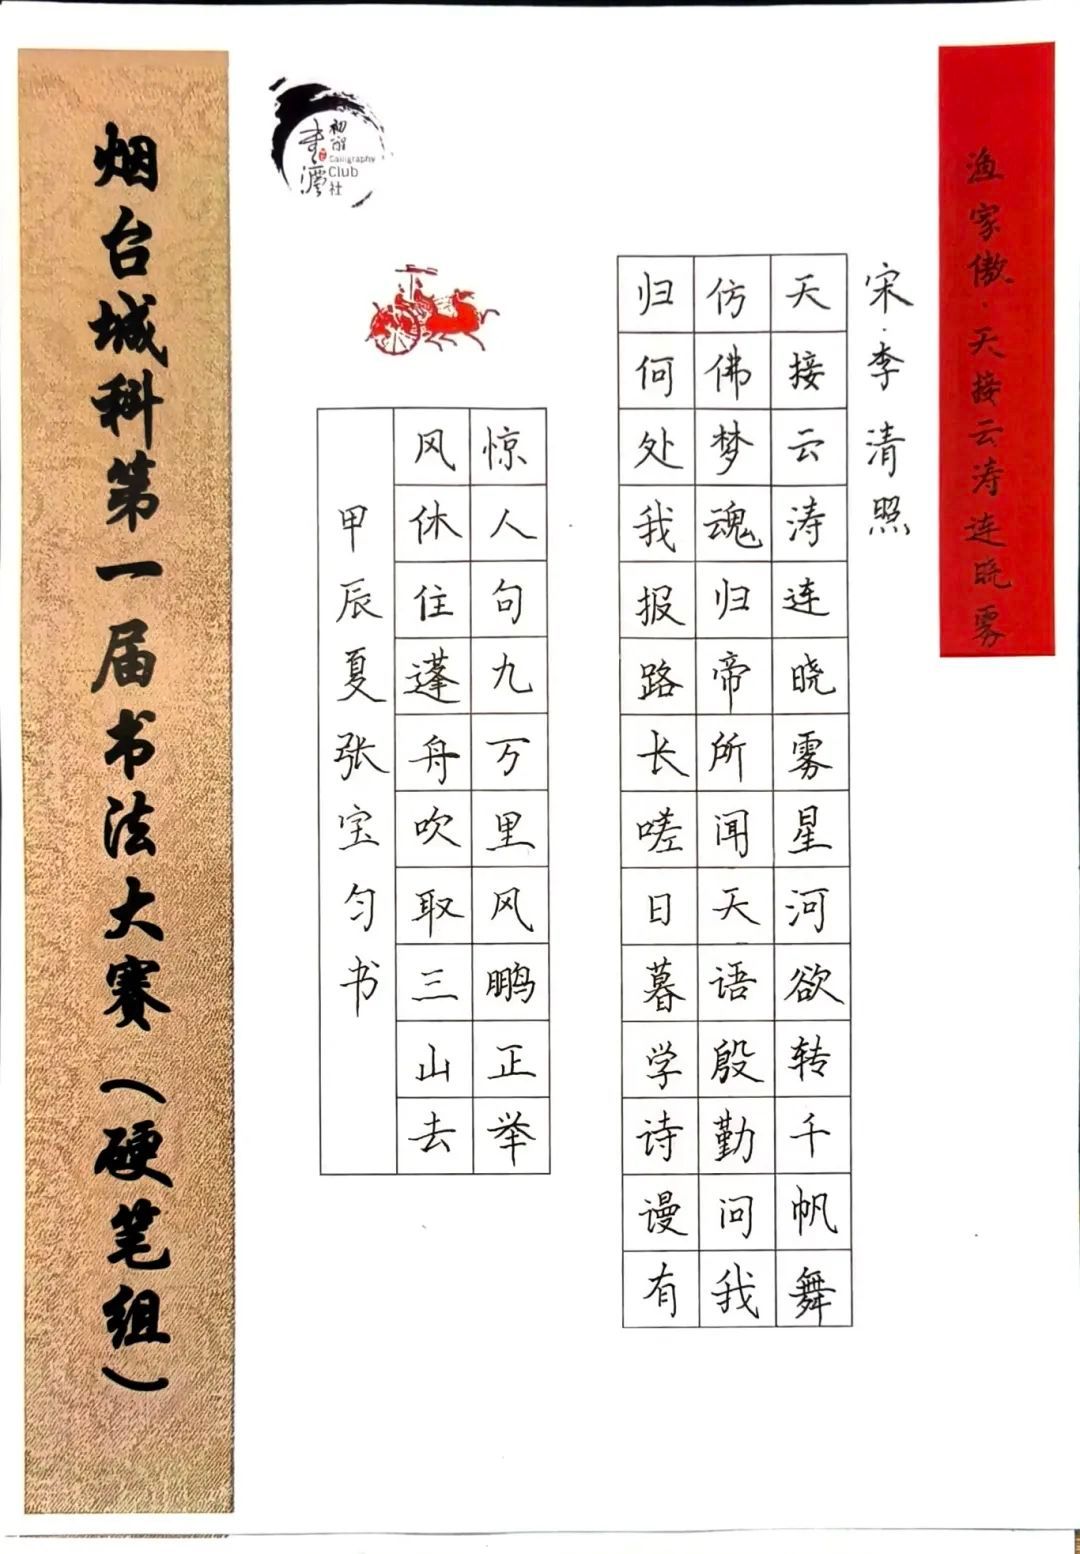 渔家傲·天接云涛连晓雾
宋·李清照
天接云涛连晓雾星河欲转千帆舞
仿佛梦魂归帝所闻天语殷勤问我
归何处我报路长嗟日暮学诗谩有
惊人句九万里风鹏正举
风休住蓬舟吹取三山去
甲辰夏张宝匀书
Calligraphy
Club
社
烟台城科第一届书法大赛（硬笔组）